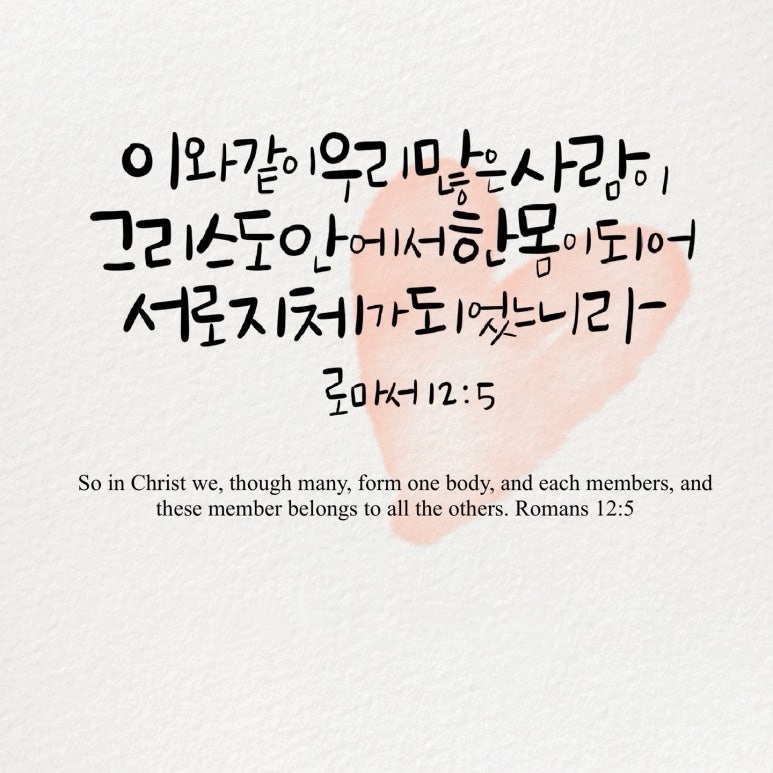 이와같이우리많은사람이
그리스도안에서한몸이되어
서로지체가되었느니라-
로마서12:5
So in Christ we, though many, form one body, and each members, and
these member belongs to all the others. Romans 12:5